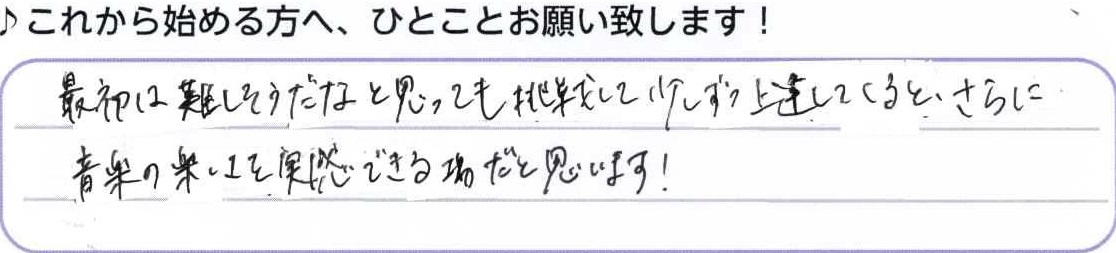 ♪これから始める方へ、ひとことお願い致します！
最初は難しそうだなと思っても挑戦して少しずつ上達してくると、さらに
音楽の楽しさを実感できる場だと思います！